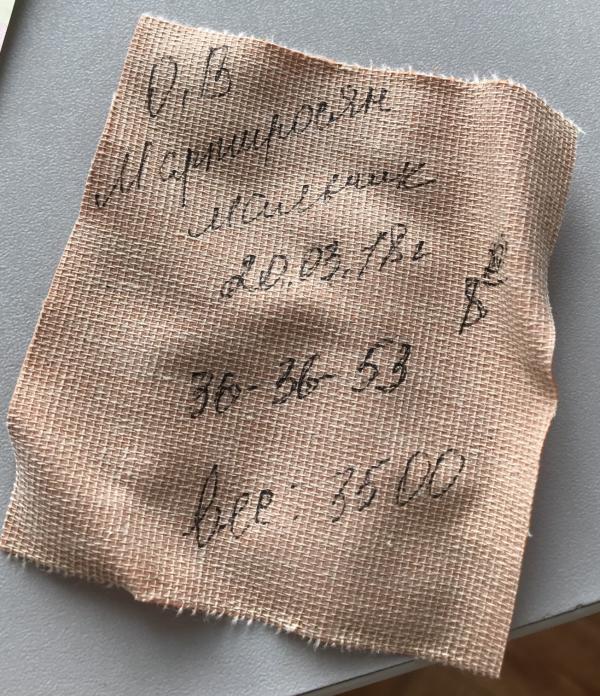 О, В
Мартиросян
мальчик
20.03.18г
36-36-53
вес: 3500